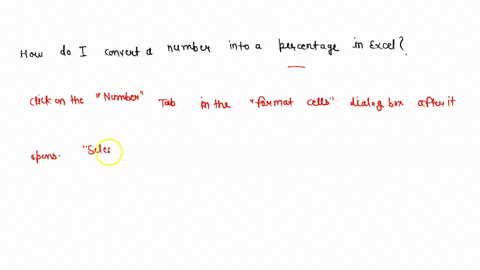 How do I convert a number into a percentage in Excel?
Click on the "Number" Tab in the "format cells" dialog box after it
opens. "Selec